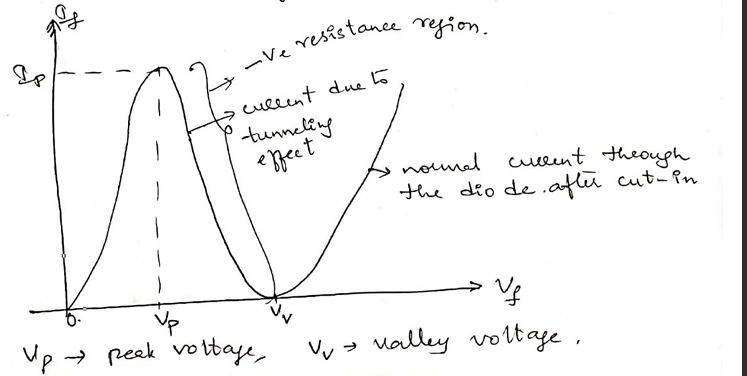 I_f
-ve resistance region.
I_p
current due to
tunneling
effect
normal current through
the diode. after cut-in
V_f
0.
V_p
V_v
V_p → peak voltage, V_v → valley voltage.